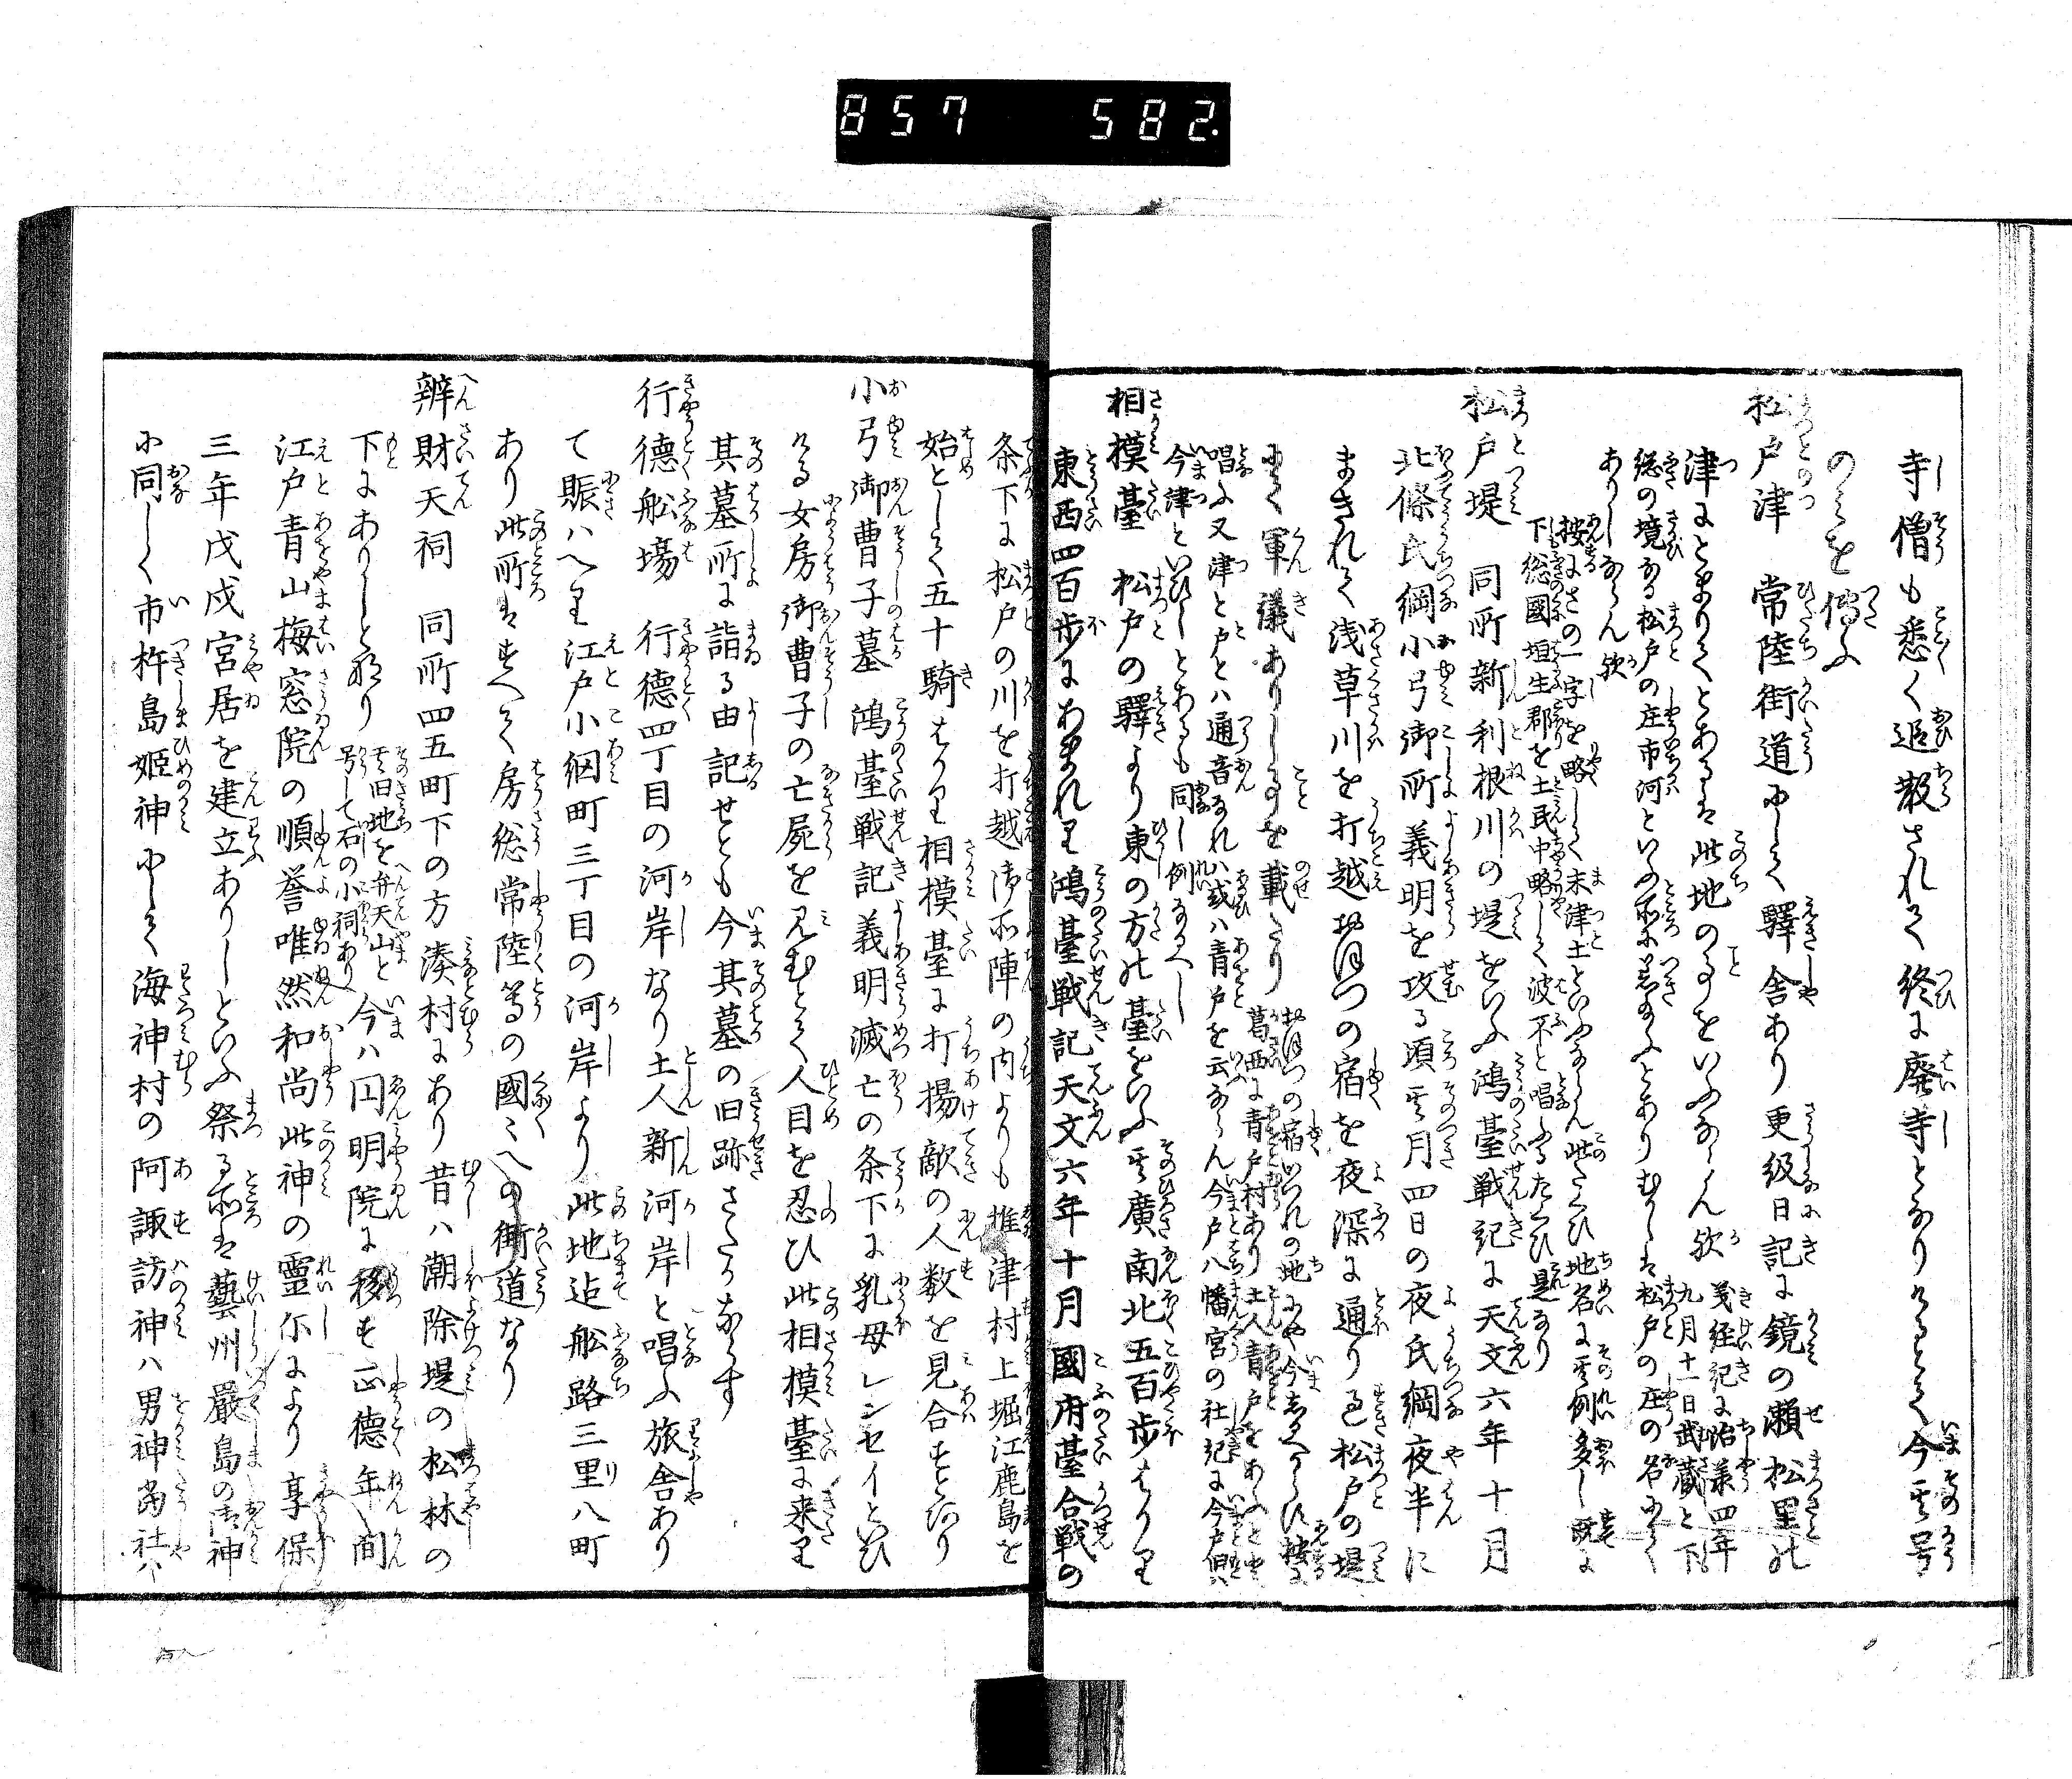 857 582.
寺僧も悉く追散されて終に廃寺となりけるとそ今其号
のみを傳ふ
松戸津 常陸街道にして驛舎あり更級日記に鏡の瀬松里の
津にとまりてとあるは此地の事をいふならん歟 義経記に治承四年
九月十一日武蔵と下
総の境なる松戸の庄市河といふ所に着給ふとありむかしは松戸の庄の名にて
ありしならん歟
按にさの一字を略して末津土といふならん此たくひ地名に其例多し既に
下総國垣生郡を土民中略して波不と唱ふるたくひ是なり
松戸堤 同所新利根川の堤をいふ鴻臺戦記に天文六年十月
北條氏綱小弓御所義明を攻る頃其月四日の夜氏綱夜半に
まきれて浅草川を打越おほつの宿を夜深に通り過松戸の堤
にて軍議ありし事を載たり おほつの宿いつれの地にや今しるへからす按に
葛西に青戸村あり土人青戸をあふとと
唱ふ又津と戸とハ通音なれハ或ハ青戸を云ならん今戸八幡宮の社記に今戸旧ハ
今津といひしとあるも同し例なるへし
相模臺 松戸の驛より東の方の臺をいふ其廣南北五百歩はかり
東西四百歩にあまれり鴻臺戦記天文六年十月國府臺合戦の
条下に松戸の川を打越御所陣の内よりも椎津村上堀江鹿島を
始として五十騎はかり相模臺に打揚敵の人数を見合すとあり
小弓御曹子墓 鴻臺戦記義明滅亡の条下に乳母レンセイといひ
ける女房御曹子の亡屍を見むとて人目を忍ひ此相模臺に来り
其墓所に詣る由記せとも今其墓の旧跡さたかならす
行德船場 行德四丁目の河岸なり土人新河岸と唱ふ旅舎あり
て賑ハへり江戸小網町三丁目の河岸より此地迠船路三里八町
あり此所はすへて房総常陸等の國々への街道なり
辨財天祠 同所四五町下の方湊村にあり昔ハ潮除堤の松林の
下にありしと那り 其旧地を弁天山と
号して石の小祠あり 今ハ円明院に移す正德年間
江戸青山梅窓院の順誉唯然和尚此神の靈示により享保
三年戊戌宮居を建立ありしといふ祭る所は藝州嚴島の御神
に同しく市杵島姫神にして海神村の阿諏訪神ハ男神當社ハ